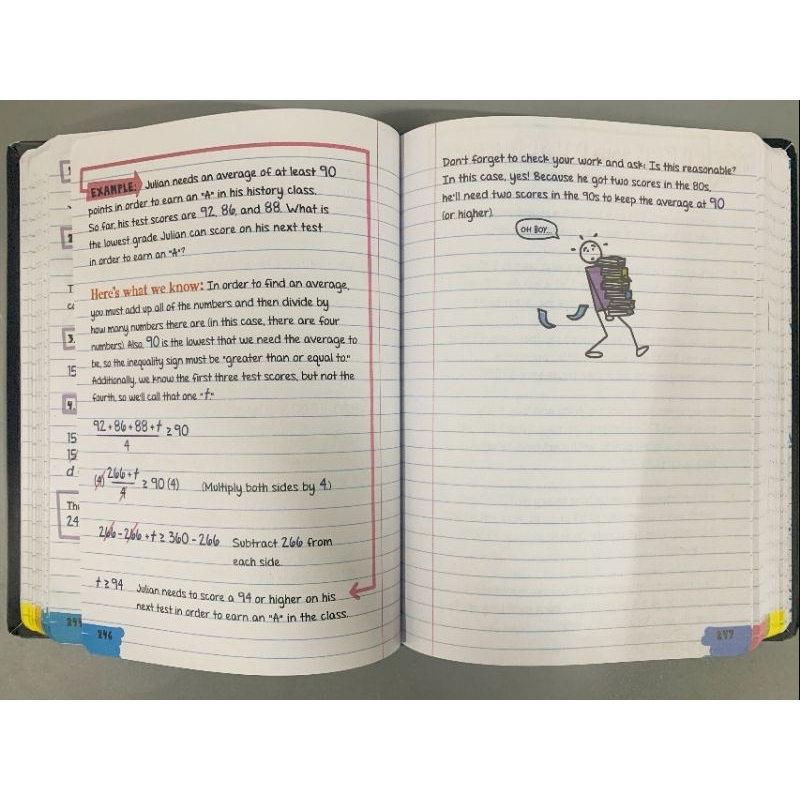 1.
2
T
c
3.
15
4.
15
15
d
The
24
244
EXAMPLE: Julian needs an average of at least 90
points in order to earn an "A" in his history class.
So far, his test scores are 92, 86, and 88. What is
the lowest grade Julian can score on his next test
in order to earn an "A"?
Here's what we know: In order to find an average,
you must add up all of the numbers and then divide by
how many numbers there are (in this case, there are four
numbers). Also, 90 is the lowest that we need the average to
be, so the inequality sign must be "greater than or equal to."
Additionally, we know the first three test scores, but not the
fourth, so we'll call that one "t."
92 + 86 + 88 + t ≥ 90
4
(4) 266 + t ≥ 90 (4) (Multiply both sides by 4.)
4
266 - 266 + t ≥ 360 - 266 Subtract 266 from
each side.
t ≥ 94 Julian needs to score a 94 or higher on his
next test in order to earn an "A" in the class.
246
Don't forget to check your work and ask: Is this reasonable?
In this case, yes! Because he got two scores in the 80s,
he'll need two scores in the 90s to keep the average at 90
(or higher).
OH BOY...
247